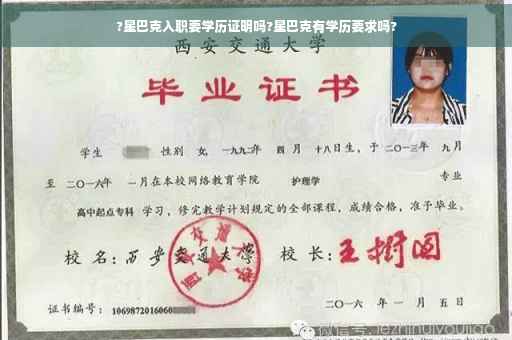 ?星巴克入职要学历证明吗?星巴克有学历要求吗?
西安交通大学
毕业证书
学生 性别 女, 一九九二年 四 月 十八日生, 于 二〇一三年 九月
至 二〇一六年 一月在本校网络教育学院 护理学 专业
高中起点专科 学习, 修完教学计划规定的全部课程, 成绩合格, 准予毕业。
校 名: 西安交通大学 校 长: 王树国
西安交通大学
证书编号: 1069872016060
二〇一六 年 一 月 五 日
微信号: lezhihuiyoujiao